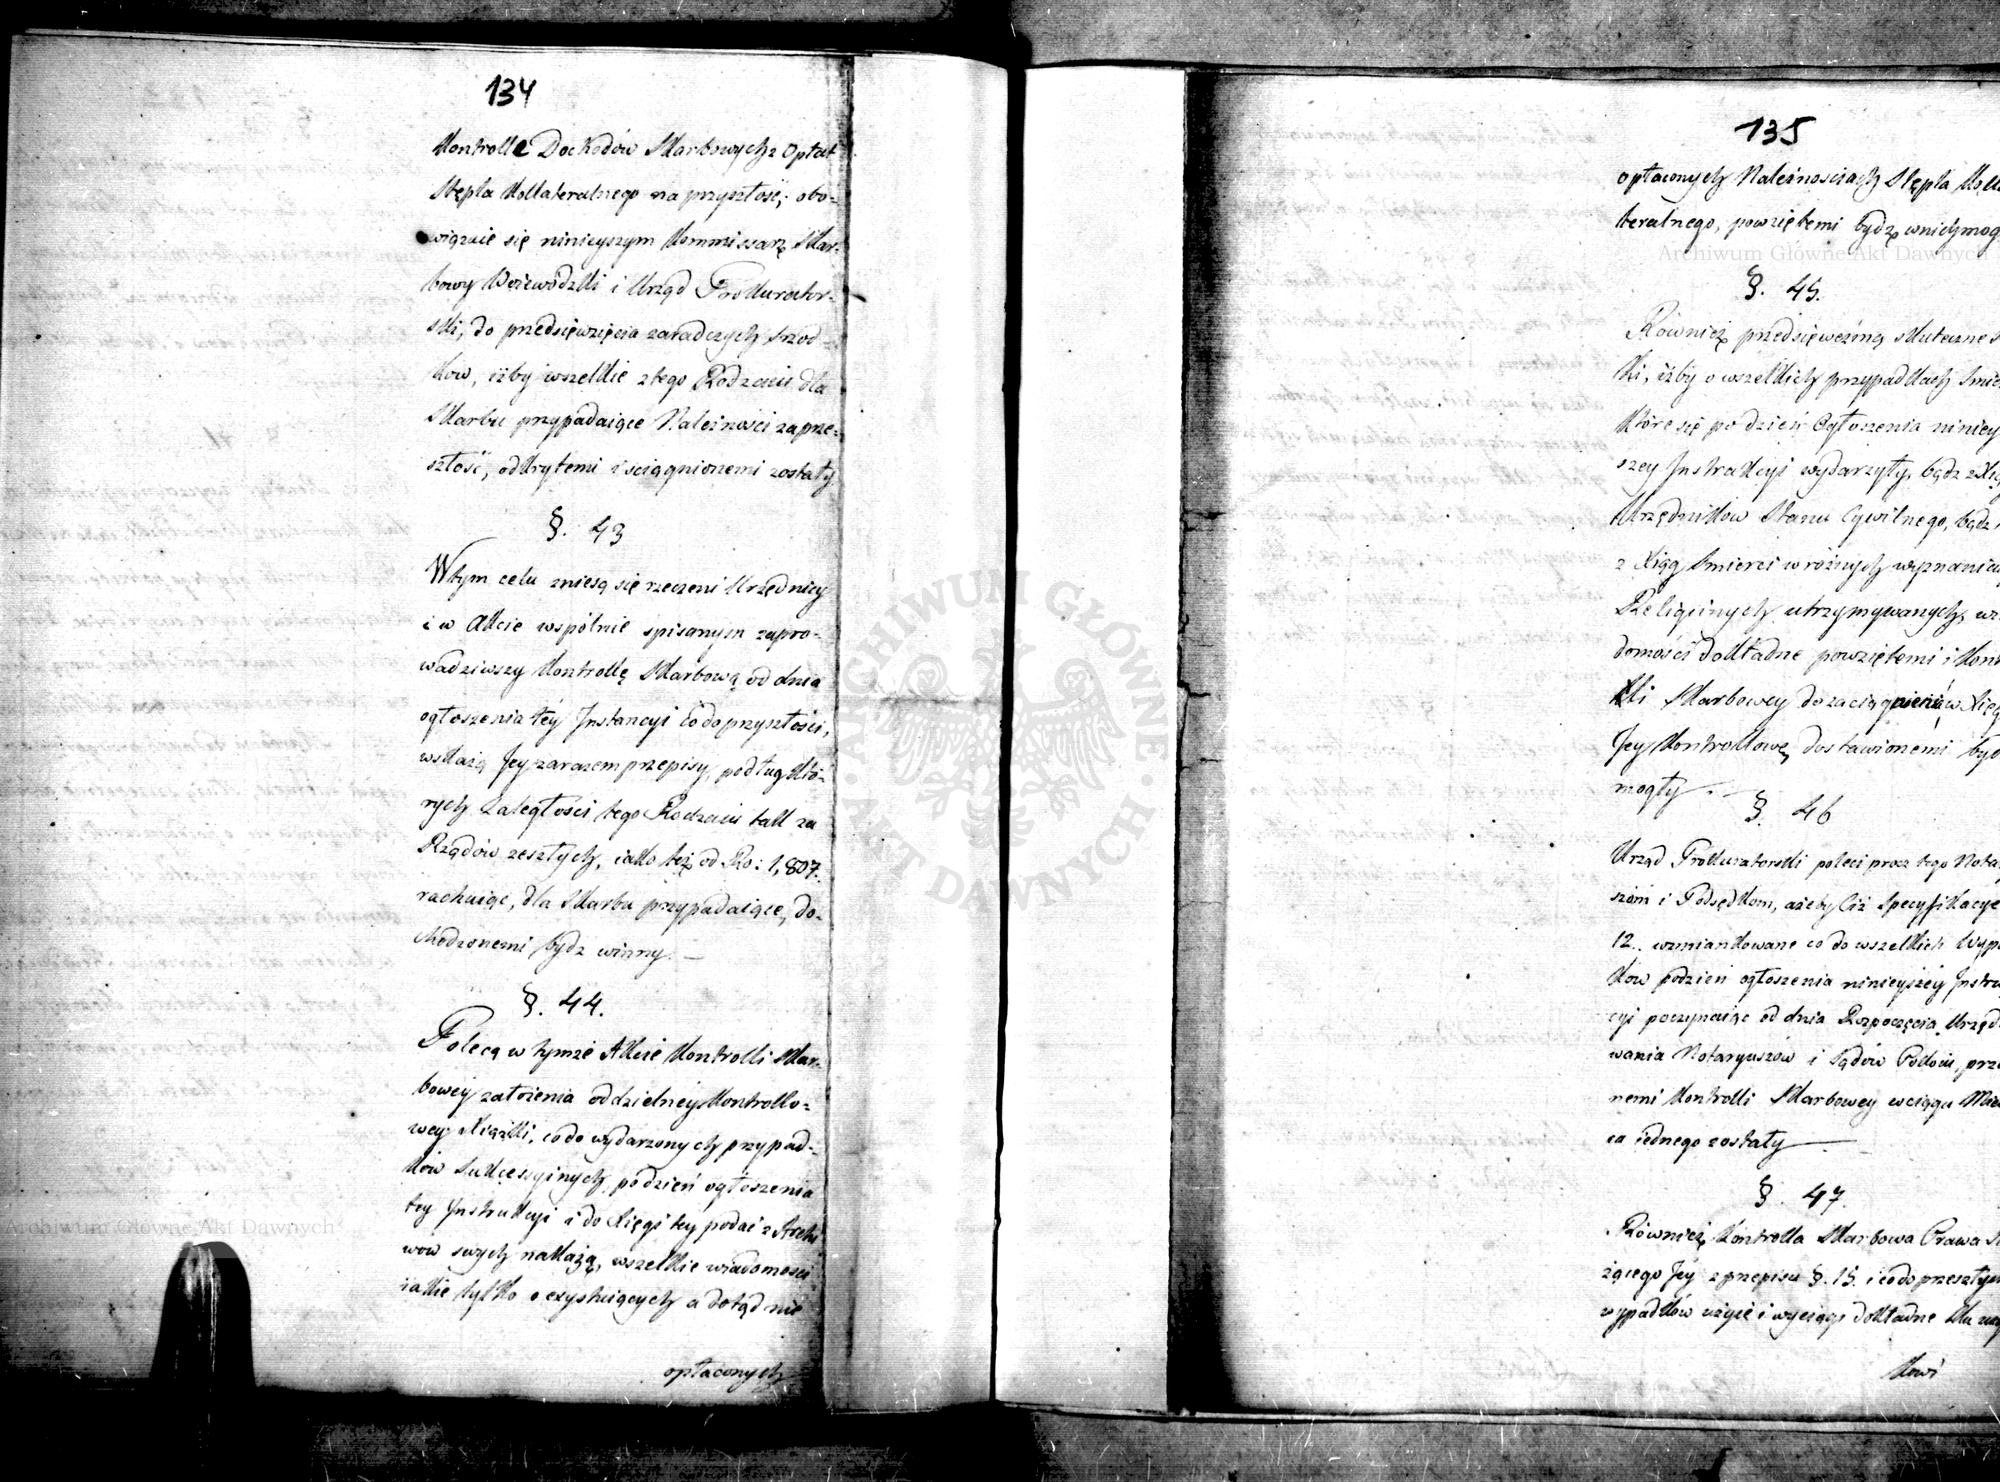 134
Kontrolle Dochodów Skarbowych z Opłat
Stępla Kollateralnego na przyszłość, obo-
wiązuie się ninieyszym Kommissarz Skar-
bowy Woiewódzki i Urząd Prokurator-
ski, do przedsięwzięcia zaradczych środ-
ków, iżby wszelkie z tego Rodzaiu dla
Skarbu przypadaiące Należności za prze-
szłość, odkrytemi i ściągnionemi zostały
§. 43
W tym celu zniesą się rzeczeni Urzędnicy
i w Akcie wspólnie spisanym zapro-
wadziwszy Kontrollę Skarbową od dnia
ogłoszenia téy Instancyi co do przyszłości,
wskażą Jey zarazem przepisy, podług któ-
rych Zaległości tego Rodzaiu tak za
Rządów zeszłych, iako też od Ro: 1,807.
rachuiąc, dla Skarbu przypadaiące, do-
chodzonemi bydz winny. —
§. 44.
Polecą w tymże Akcie Kontrolli Skar-
bowéy założenia oddzielnéy Kontrollo-
wey Xiążki, co do wydarzonych przypad-
ków Sukcessyinych, po dzień ogłoszenia
tey Instrukcyi i do Xięgi tey podać z Archi
wow swych nakażą, wszelkie wiadomości
iakie tylko o exystuiących a dotąd nie
opłaconych
135
opłaconych Należnościach Stępla Kolla
teralnego, powziętemi bydz w nich mog
Archiwum Główne Akt Dawnych
§. 45.
Również przedsięwezmą skuteczne s
ki, iżby o wszelkich przypadkach Smier
które się po dzień Ogłoszenia niniey
szey Instrukcyi wydarzyły, bądz z Xią
Urzędników Stanu Cywilnego, bądz
z Xiąg Smierci w różnych wyznaniach
Religiinych utrzymywanych, wi
domości dokładne powziętemi i Kont
lli Skarbowey do zaciągnienia w Xięg
Jey Kontrollowe dostawionemi bydz
mogły. —
§. 46
Urząd Prokuratorski poleci prócz tego Nota
szóm i Podsędkom, ażeby Ciż Specyfikacye
12. wzmiankowane co do wszelkich wypa
ków po dzień ogłoszenia ninieyszéy Instru
cyi poczynaiąc od dnia Rozpoczęcia Urzędo
wania Notaryuszów i Sądów Pokoiu, prze
nemi Kontrolli Skarbowey w ciągu Mie
ca iednego zostały —
§. 47.
Również Kontrolla Skarbowa Prawa sł
żącego Jéy z przepisu §. 15. i co do przeszłyc
wypadków użyie i wyciągi dokładne ku uzy
kowi
Archiwum Główne Akt Dawnych
ARCHIWUM GŁÓWNE · AKT DAWNYCH ·